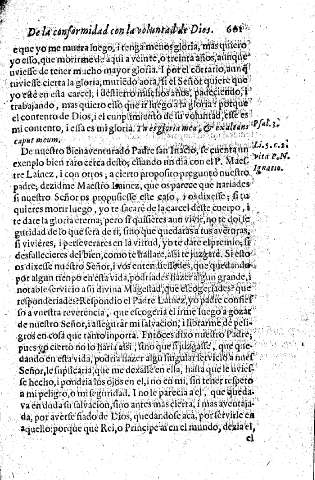 De la conformidad con la voluntad de Dios. 661
e que yo me muera luego, i tenga menos gloria, mas quiero
yo esso, que morirme de aqui a veinte, o treinta años, aunque
uviesse de tener mucho mayor gloria. I por el côtrario, aunq̃
tuviesse cierta la gloria, muriẽdo aora, si el Señor quiere que
yo esté en esta carcel, i destierro muchos años, padeciendo, i
trabajando, mas quiero esso que ir luego a la gloria: porque
el contento de Dios, i el cumplimiento de su voluntad, esse es
mi contento, i essa es mi gloria. Tu es gloria mea, & exaltans
caput meum.
Psal. 3.
De nuestro bienaventurado Padre san Inacio, se cuenta un
exemplo bien raro cerca desto; estando un dia con el P. Maes
tre Lainez, i con otros, a cierto proposito preguntó nuestro
padre, dezidme Maestro Lainez, que os parece que hariades
si nuestro Señor os propusiesse este caso, i os dixesse; si tu
quieres morir luego, yo te sacaré de la carcel deste cuerpo, i
te daré la gloria eterna; pero si quisieres aun vivir, no te doi se
guridad de lo que será de ti, sino que quedarás a tus aventuras,
si vivieres, i perseverares en la virtud, yo te daré el premio, si
desfallecieres del bien, como te hallare, assi te juzgaré. Si esto
os dixesse nuestro Señor, i vos entendiessedes, que quedando
por algun tiempo en esta vida, podriades hazer algun grande, i
notable servicio a su divina Magestad, que escogeriades? que
responderiades? Respondio el Padre Lainez, yo padre confies
so a vuestra reverencia, que escogeria el irme luego a gozar
de nuestro Señor, i assegurar mi salvacion, i librarme de peli-
gros en cosa que tanto importa. Entõces dixo nuestro Padre,
pues yo cierto no lo haria assi, sino que si juzgasse, que que-
dando en esta vida, podria hazer algun singular servicio a nues
Señor, le suplicaria, que me dexasse en ella, hasta que le uvies-
se hecho, i pondria los ojos en el, i no en mi, sin tener respeto
a mi peligro, o mi seguridad. I no le parecia a el, que queda-
va en duda su salvacion, sino antes mas cierta, i mas aventaja-
da, por averse fiado de Dios, quedandose acá, por servirle en
aquello: porque que Rei, o Principe ai en el mundo, dezia el,
el
Li. 5. c. 2.
vitæ P. N.
Ignatio.